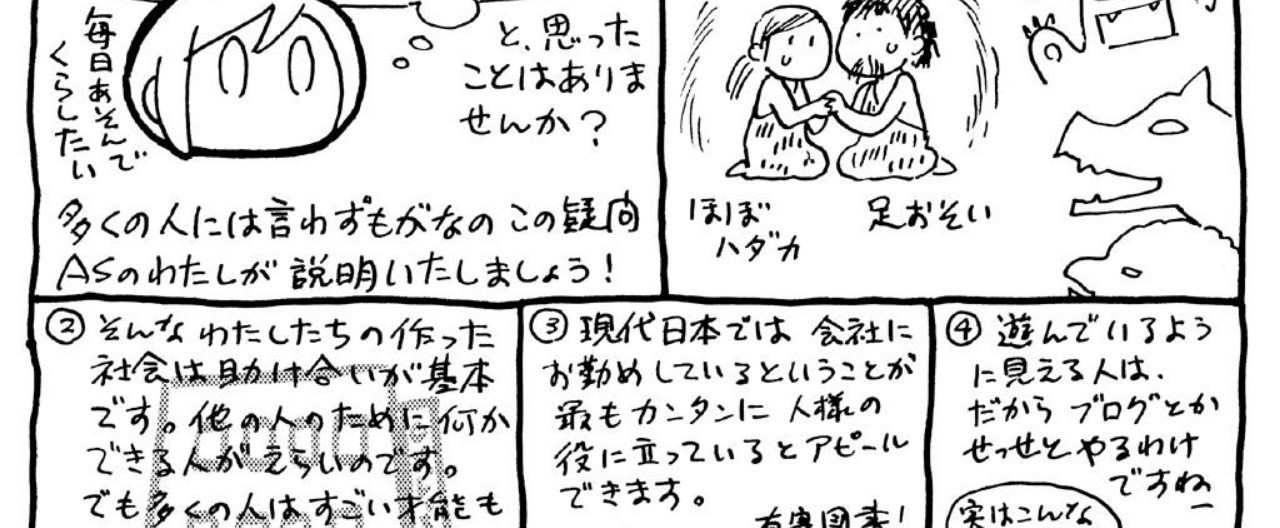 毎日あそんで
くらしたい
と、思った
ことはありま
せんか？
多くの人には言わずもがなの この疑問
ASのわたしが 説明いたしましょう！
ほぼ
ハダカ
足おそい
② そんな わたしたちの作った
社会は助け合いが基本
です。他の人のために何か
できる人がえらいのです。
でも多くの人はすごい才能も
③ 現代日本では 会社に
お勤めしているということが
最もカンタンに 人様の
役に立っているとアピール
できます。
④ 遊んでいるよう
に見える人は、
だから ブログとか
せっせと やるわけ
ですねー
実はこんな